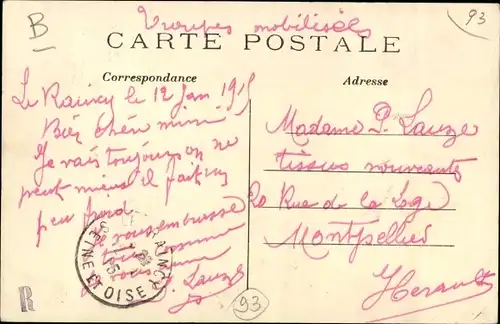 B
Troupes mobilisées
93
CARTE POSTALE
Correspondance
Adresse
Le Raincy le 12 Jan 1915
Bien chère mimi
Je vais toujours on ne
peut mieux il fait un
peu froid
Je vous embrasse
tous comme
je vous aime
P. Lauze
Madame P. Lauze
tissus nouveautés
20 Rue de la Loge
Montpellier
Herault
RAINCY
SEINE ET OISE
93
R